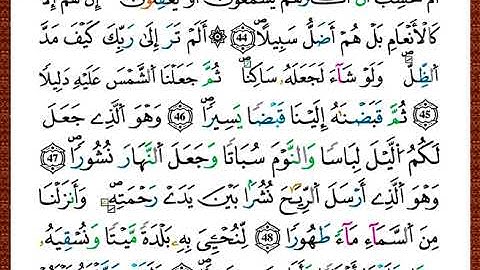 أَمْ تَحْسِبُ أَنَّ أَكْثَرَهُمْ يَسْمَعُونَ أَوْ يَعْقِلُونَ إِنْ هُمْ إِلَّا
كَالْأَنْعَٰمِ بَلْ هُمْ أَضَلُّ سَبِيلًا 44 ۞ أَلَمْ تَرَ إِلَىٰ رَبِّكَ كَيْفَ مَدَّ
الظِّلَّ وَلَوْ شَآءَ لَجَعَلَهُۥ سَاكِنًا ثُمَّ جَعَلْنَا الشَّمْسَ عَلَيْهِ دَلِيلًا
45 ثُمَّ قَبَضْنَٰهُ إِلَيْنَا قَبْضًا يَسِيرًا 46 وَهُوَ الَّذِي جَعَلَ
لَكُمُ الَّيْلَ لِبَاسًا وَالنَّوْمَ سُبَاتًا وَجَعَلَ النَّهَارَ نُشُورًا 47
وَهُوَ الَّذِي أَرْسَلَ الرِّيَٰحَ نُشْرًا بَيْنَ يَدَىْ رَحْمَتِهِۦ وَأَنزَلْنَا
مِنَ السَّمَآءِ مَآءً طَهُورًا 48 لِّنُحْـِۧيَ بِهِۦ بَلْدَةً مَّيْتًا وَنُسْقِيَهُۥ